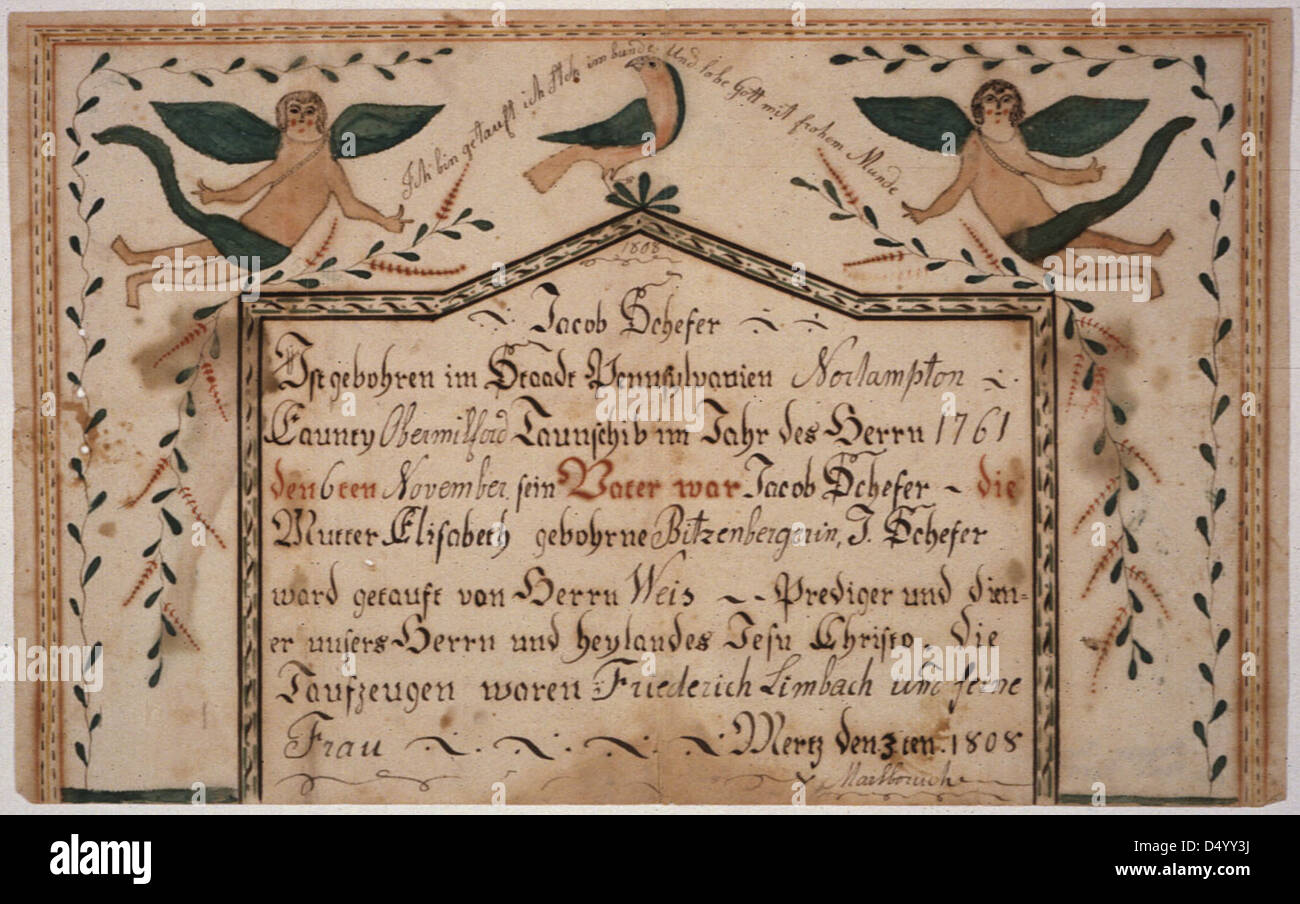 Ich bin getauft ich steh im bunde Und lobe Gott mit frohem Munde
1808
Jacob Schefer
Ist gebohren im Staadt Pennsylvanien Nortampton
Caunty Obermilford Taunschib im Jahr des Herrn 1761
den 6ten November, sein Vater war Jacob Schefer - die
Mutter Elisabeth gebohrne Bitzenbergerin, J. Schefer
ward getauft von Herrn Weis - - Prediger und dien-
er unsers Herrn und heylandes Jesu Christo. Die
Taufzeugen waren Friederich Limbach und seine
Frau Mertz den 3ten. 1808
a alamy
alamy
Image ID: D4YY3J
www.alamy.com